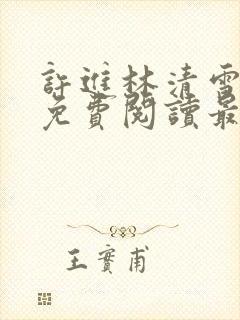 許進林清雪
免費閱讀最
王實甫